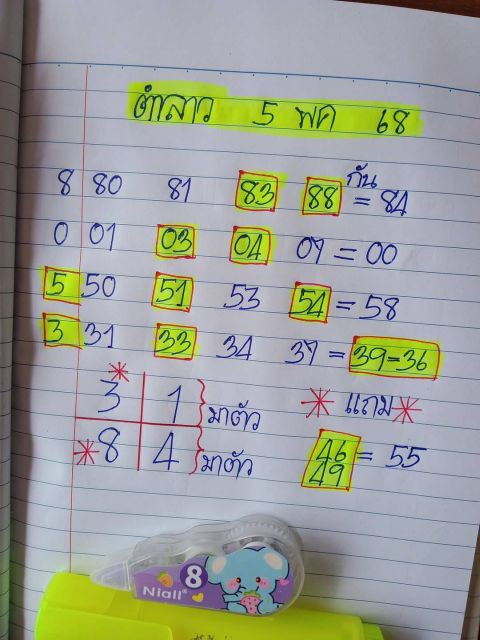 ตำลาว 5 พค 68
กัน
8 80 81 83 88 = 84
0 01 03 04 09 = 00
5 50 51 53 54 = 58
3 31 33 34 37 = 39-36
3 1 มาตัว * แถม *
8 4 มาตัว
46
49 = 55
8
Niall